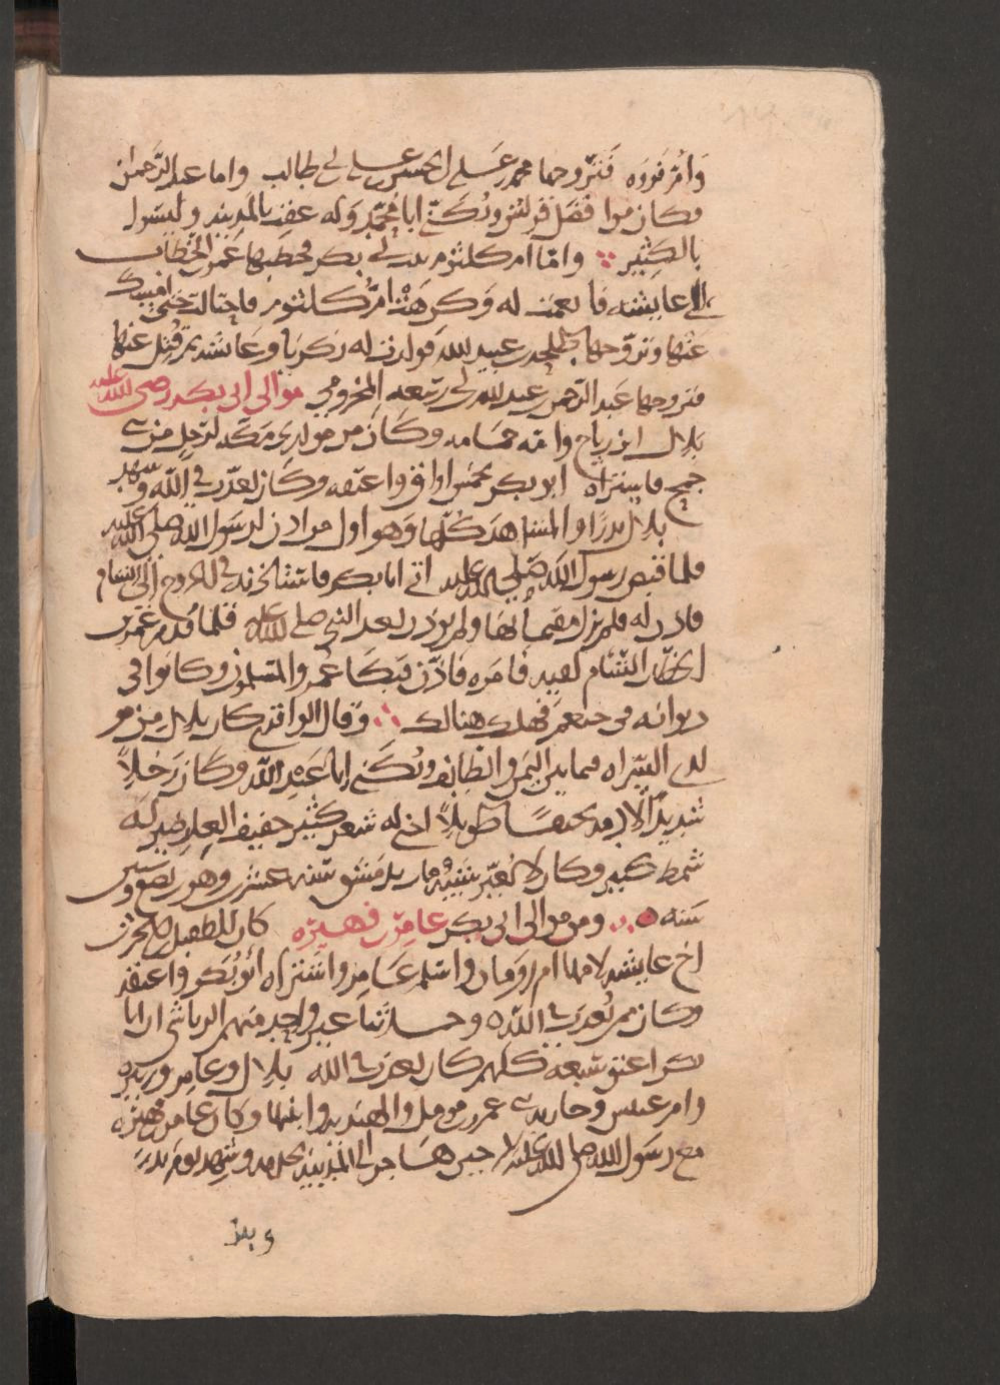 وام فروه فتزوجها محمد بن علي بن الحسين بن علي بن ابي طالب واما عبد الرحمان
وكان من افضل قريش ويكنى ابا محمد وله عقب بالمدينه وليسوا
بالكثير واما ام كلثوم بنت ابي بكر فخطبها عمر بن الخطاب
الى عايشه فانعمت له وكرهته ام كلثوم فاحتالت حتى امسك
عنها وتزوجها طلحه بن عبيد الله فولدت له زكريا وعايشه ثم قتل عنها
فتزوجها عبد الرحمن بن عبد الله بن ابي ربيعه المخزومي موالى ابي بكر رضى الله عليه
بلال ابن رباح وامه حمامه وكان من مولدي مكه لرجل من بني
جمح فاشتراه ابو بكر بخمس اواق واعتقه وكان يعذب في الله وشهد
بلال بدرا والمشاهد كلها وهو اول من اذن لرسول الله صلى الله عليه
فلما قبض رسول الله صلى الله عليه اتى ابا بكر فاستاذنه في الخروج الى الشام
فاذن له فلم يزل مقيما بها ولم يوذن بعد النبي صلى الله عليه فلما قدم عمر بن
الخطاب الشام لقيه فامره فاذن فبكا عمر والمسلمون وكانوا في
ديوانه في خثعم فهلك هنالك وقال الواقدي كان بلال من مو
لدي السراه فيما بين اليمن والطايف ويكنى ابا عبد الله وكان رجلا
شديد الادمه نحيفا طويلا اجنى له شعر كثير خفيف العارضين له
شمط كثير وكان لا يغير شيبه مات بدمشق سنه عشرين وهو بضع وستين
سنه ومن موالى ابي بكر عامر بن فهيره كان للطفيل بن الحرث
اخ عايشه لامها ام رومان واسلم عامر واشتراه ابو بكر واعتقه
وكان ممن يعذب في الله وحدثنا غير واحد منهم الرياشي ان ابا
بكر اعتق سبعه كلهم كان يعذب في الله بلال وعامر وزنيره
وام عبيس وجاريه بني عمرو بن مومل والهنديه وابنتها وكان عامر بن فهيره
مع رسول الله صلى الله عليه حين هاجر الى المدينه يخدمه وشهد يوم بدر